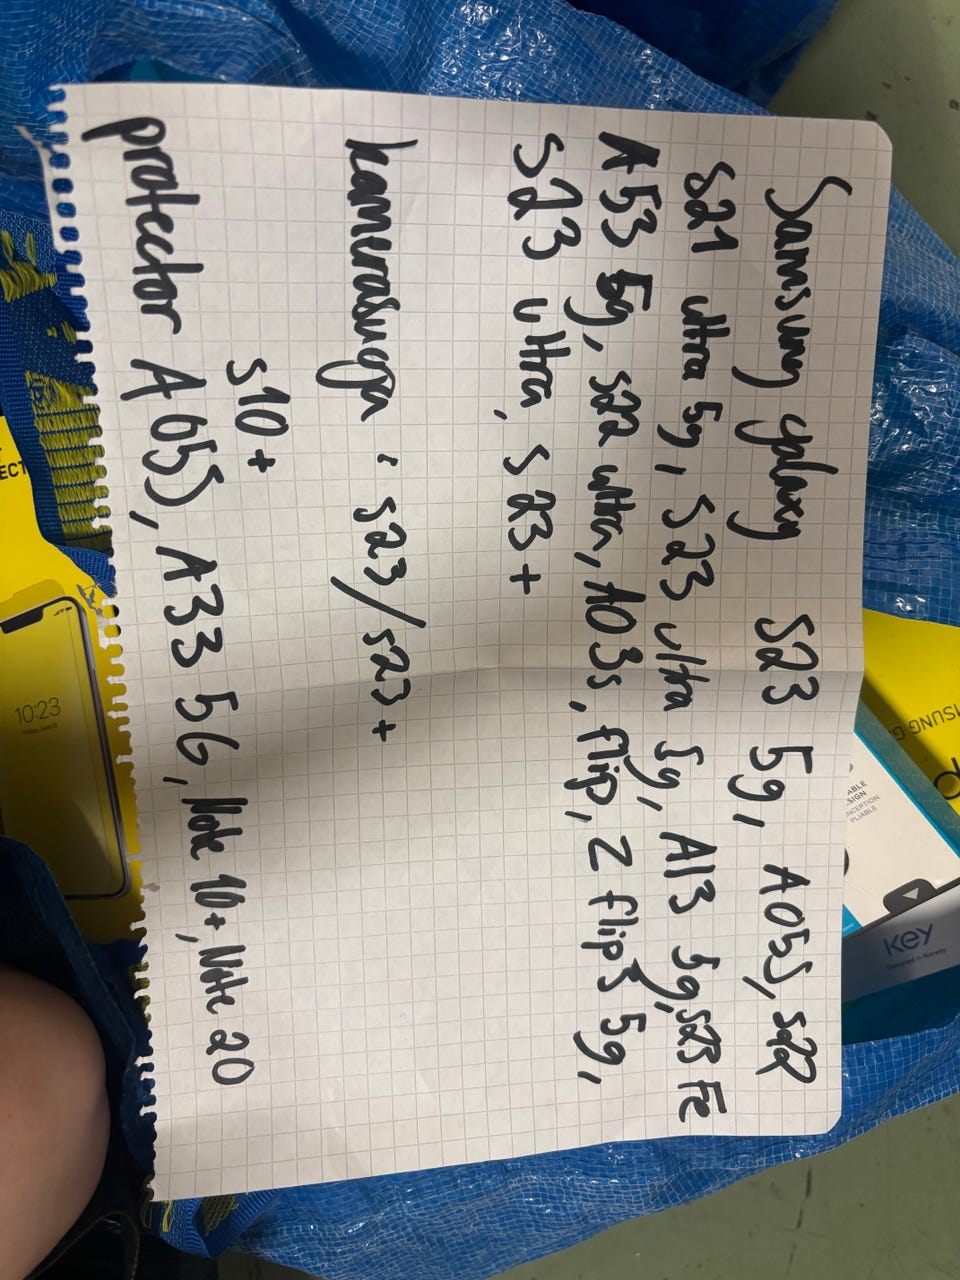 Samsung galaxy S23 5g, A05s, S22
S21 ultra 5g, S23 ultra 5g, A13 5g, S23 Fe
A53 5g, S22 ultra, A03s, flip, Z flip3 5g,
S23 ultra, S23+
kamerasuoja: S23/S23+
S10+
protector A05s, A33 5G, Note 10+, Note 20
10:23
key
Designed in Norway
ABLE
SIGN
NCEPTION
PLIABLE
MSUNG G
ECT